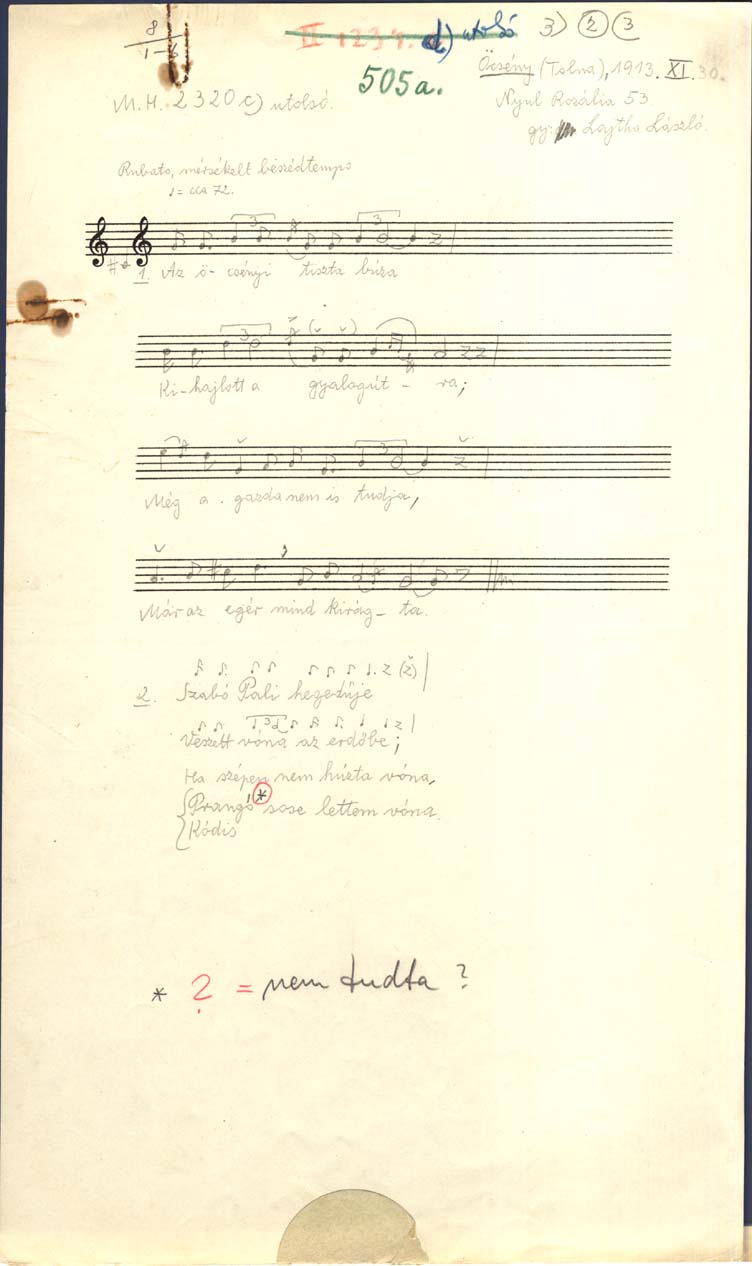 8
1-6
II 1234. d) utolsó 3) 2 3
505a.
Őcsény (Tolna), 1913. XI. 30.
M.H. 2320 c) utolsó.
Nyul Rozália 53
gy: Lajtha László.
Rubato, mérsékelt beszédtempo
♩= cca 72.
1. Az ő- csényi tiszta búza
Ki-hajlott a gyalogút - ra;
Még a gazda nem is tudja,
Már az egér mind kirág- ta.
2. Szabó Pali hegedűje
Veszett vóna az erdőbe;
Ha szépen nem húzta vóna,
Prangó * sose lettem vóna.
Kódis
* ? = nem tudta ?